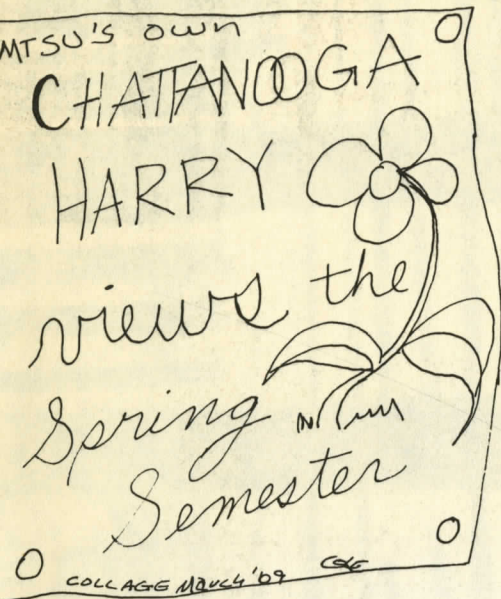 MTSU'S OWN
CHATTANOOGA
HARRY
views the
Spring
Semester
COLLAGE March '69